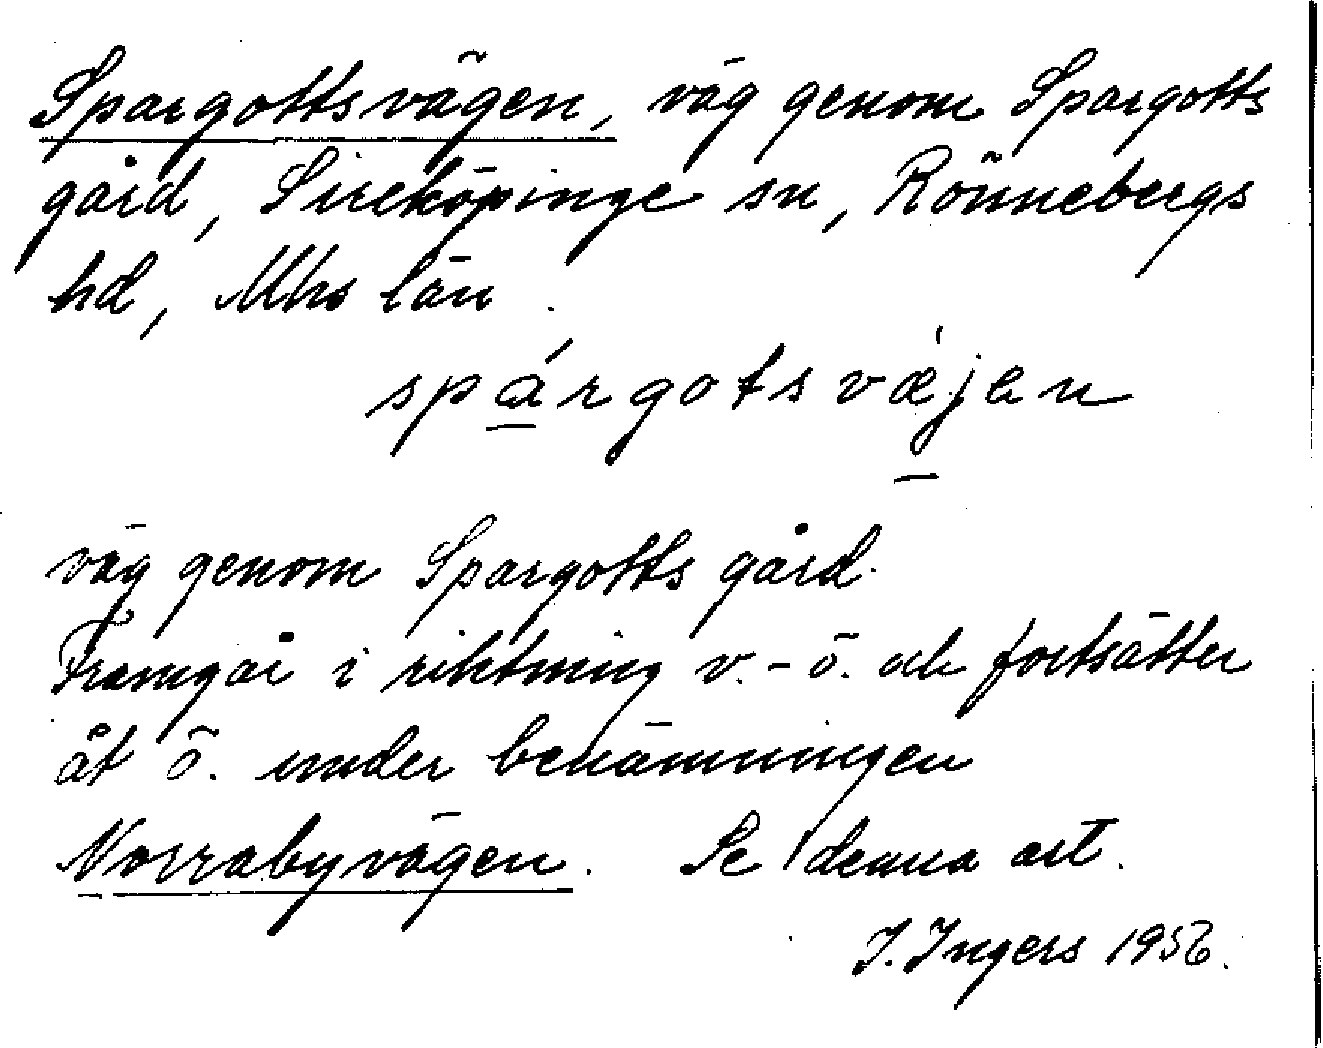 Spargottsvägen, väg genom Spargotts
gård, Sireköpinge sn, Rönnebergs
hd, Mhs län.
spárgotsvæ̀jen
väg genom Spargotts gård.
Framgår i riktning v.-ö. och fortsätter
åt ö. under benämningen
Norrabyvägen. Se denna art.
I. Ingers 1956.